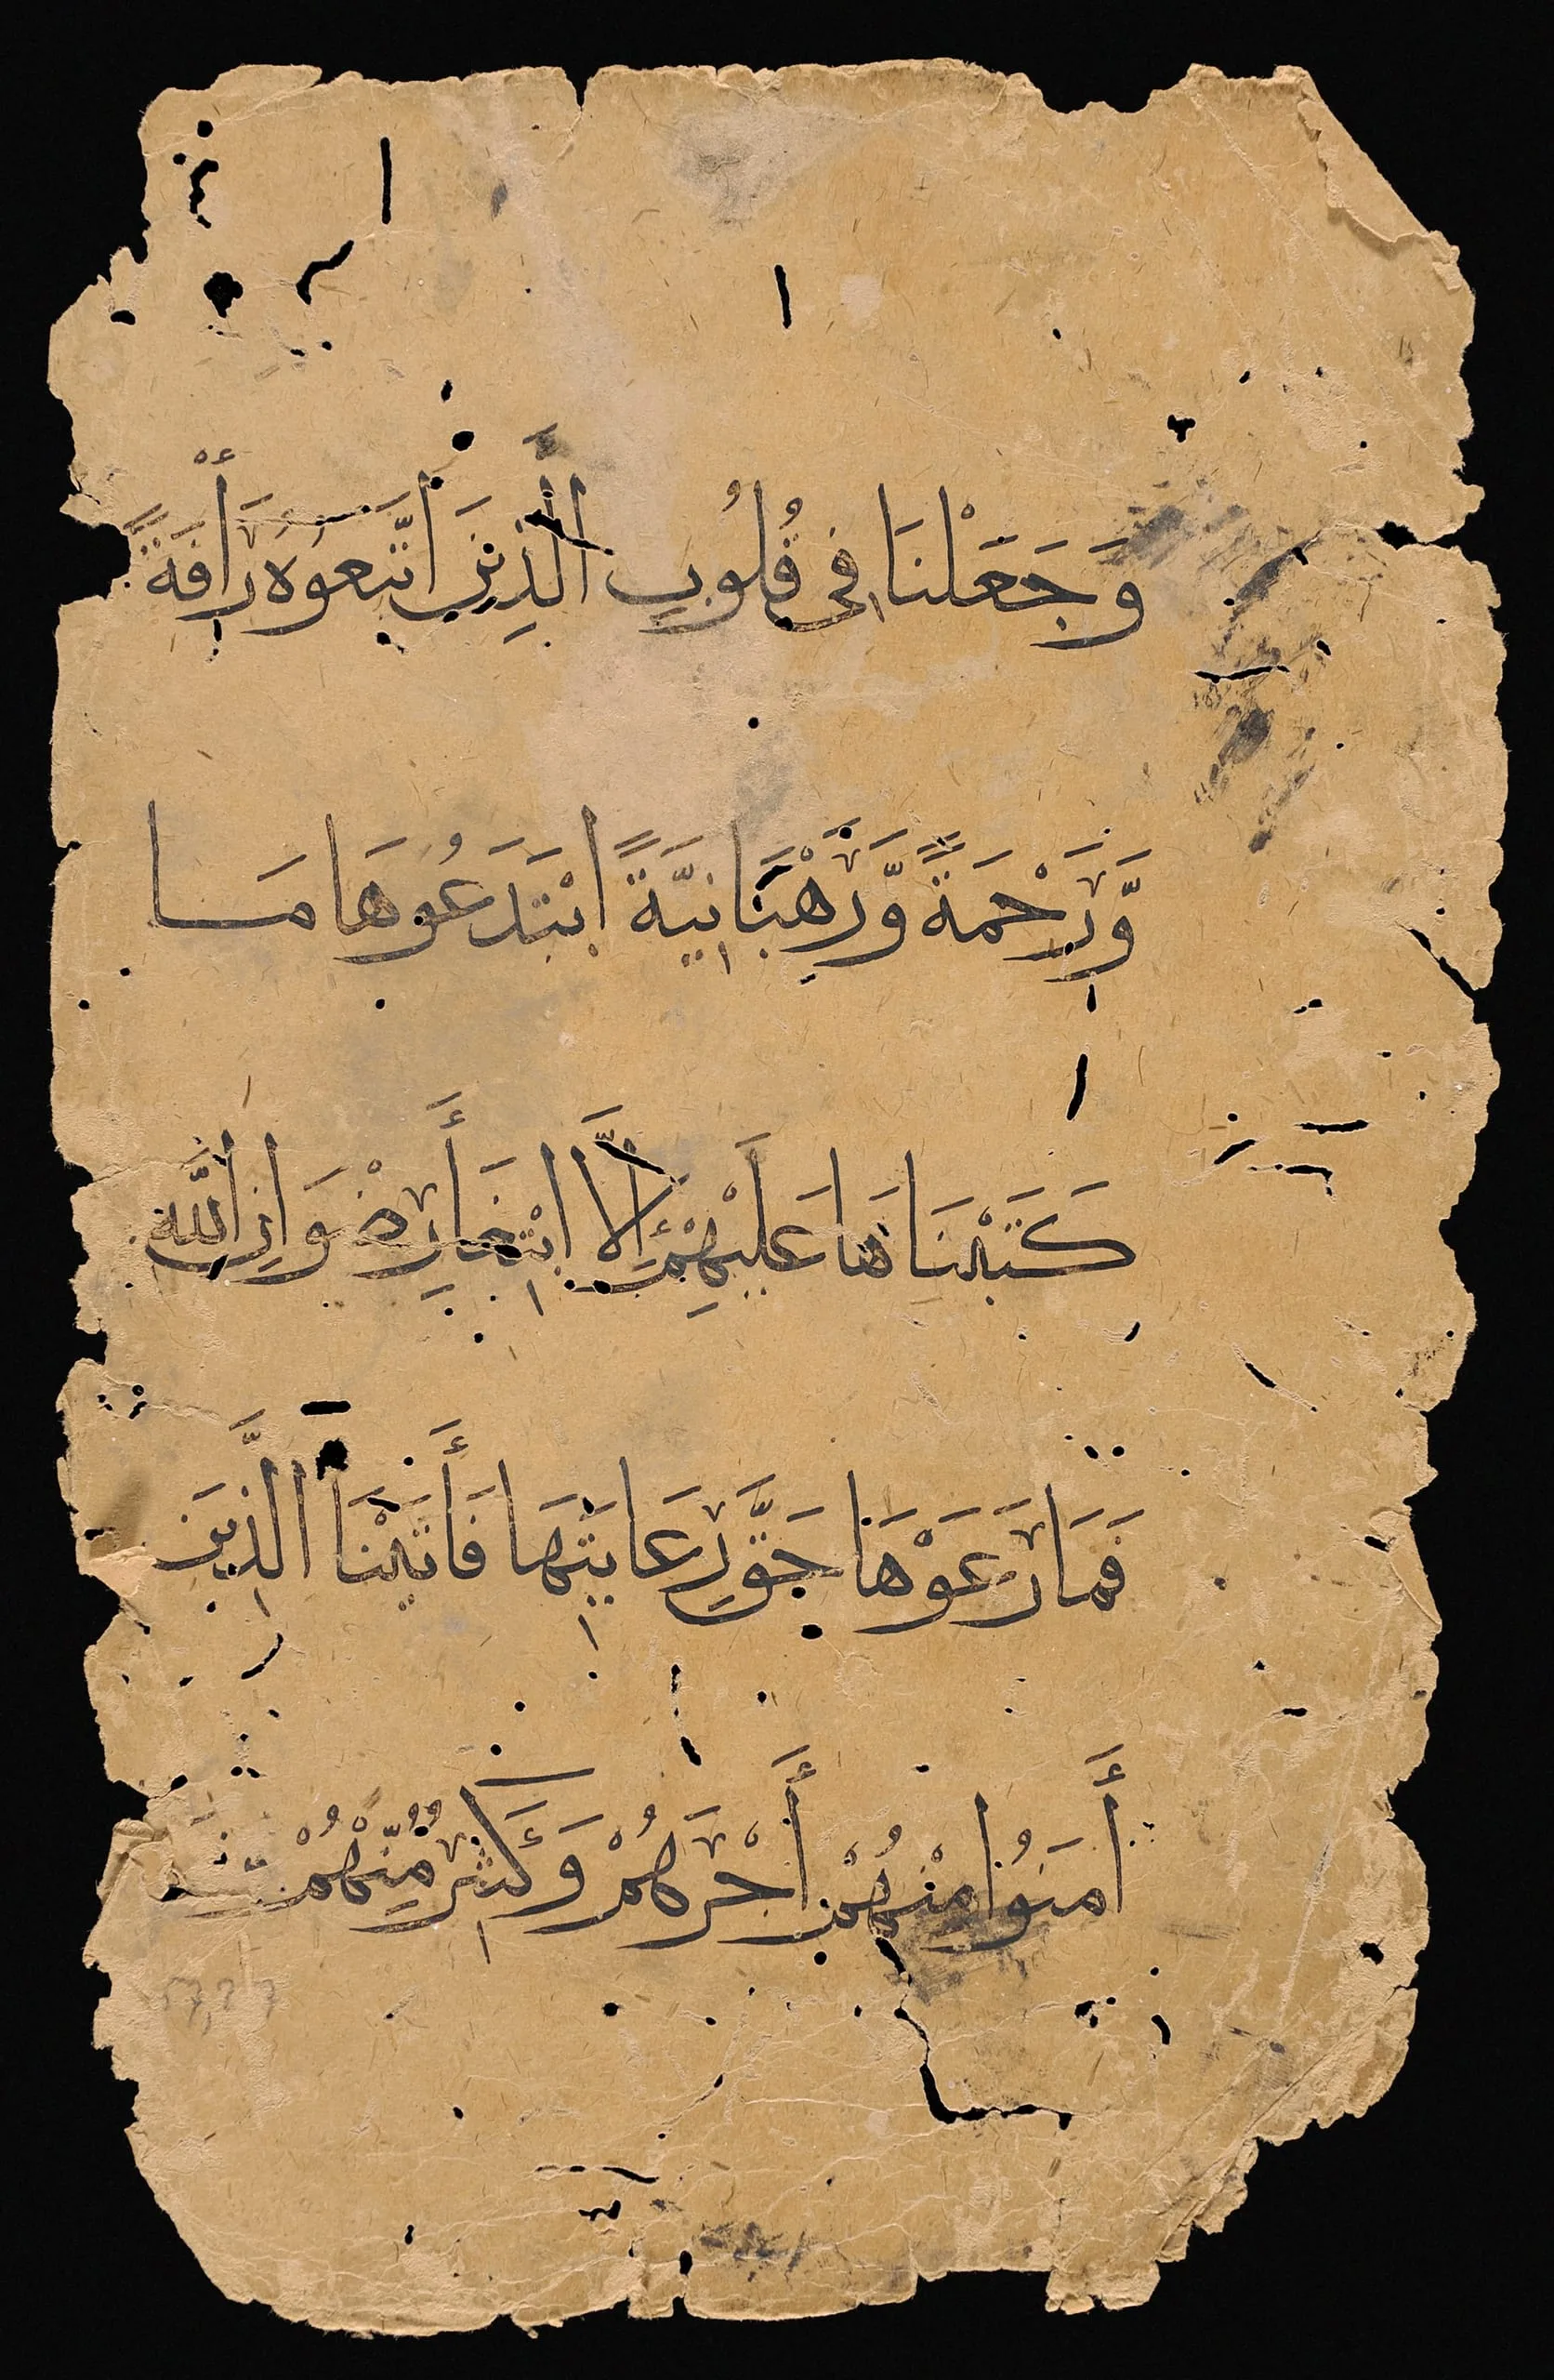 وَجَعَلْنَا فِى قُلُوبِ الَّذِينَ اتَّبَعُوهُ رَأْفَةً
وَّرَحْمَةً وَّرَهْبَانِيَّةً ابْتَدَعُوهَا مَا
كَتَبْنَاهَا عَلَيْهِمْ إِلَّا ابْتِغَاءَ رِضْوَانِ اللَّهِ
فَمَا رَعَوْهَا حَقَّ رِعَايَتِهَا فَأَتَيْنَا الَّذِينَ
أَمَنُوا مِنْهُمْ أَجْرَهُمْ وَكَثِيرٌ مِّنْهُمْ